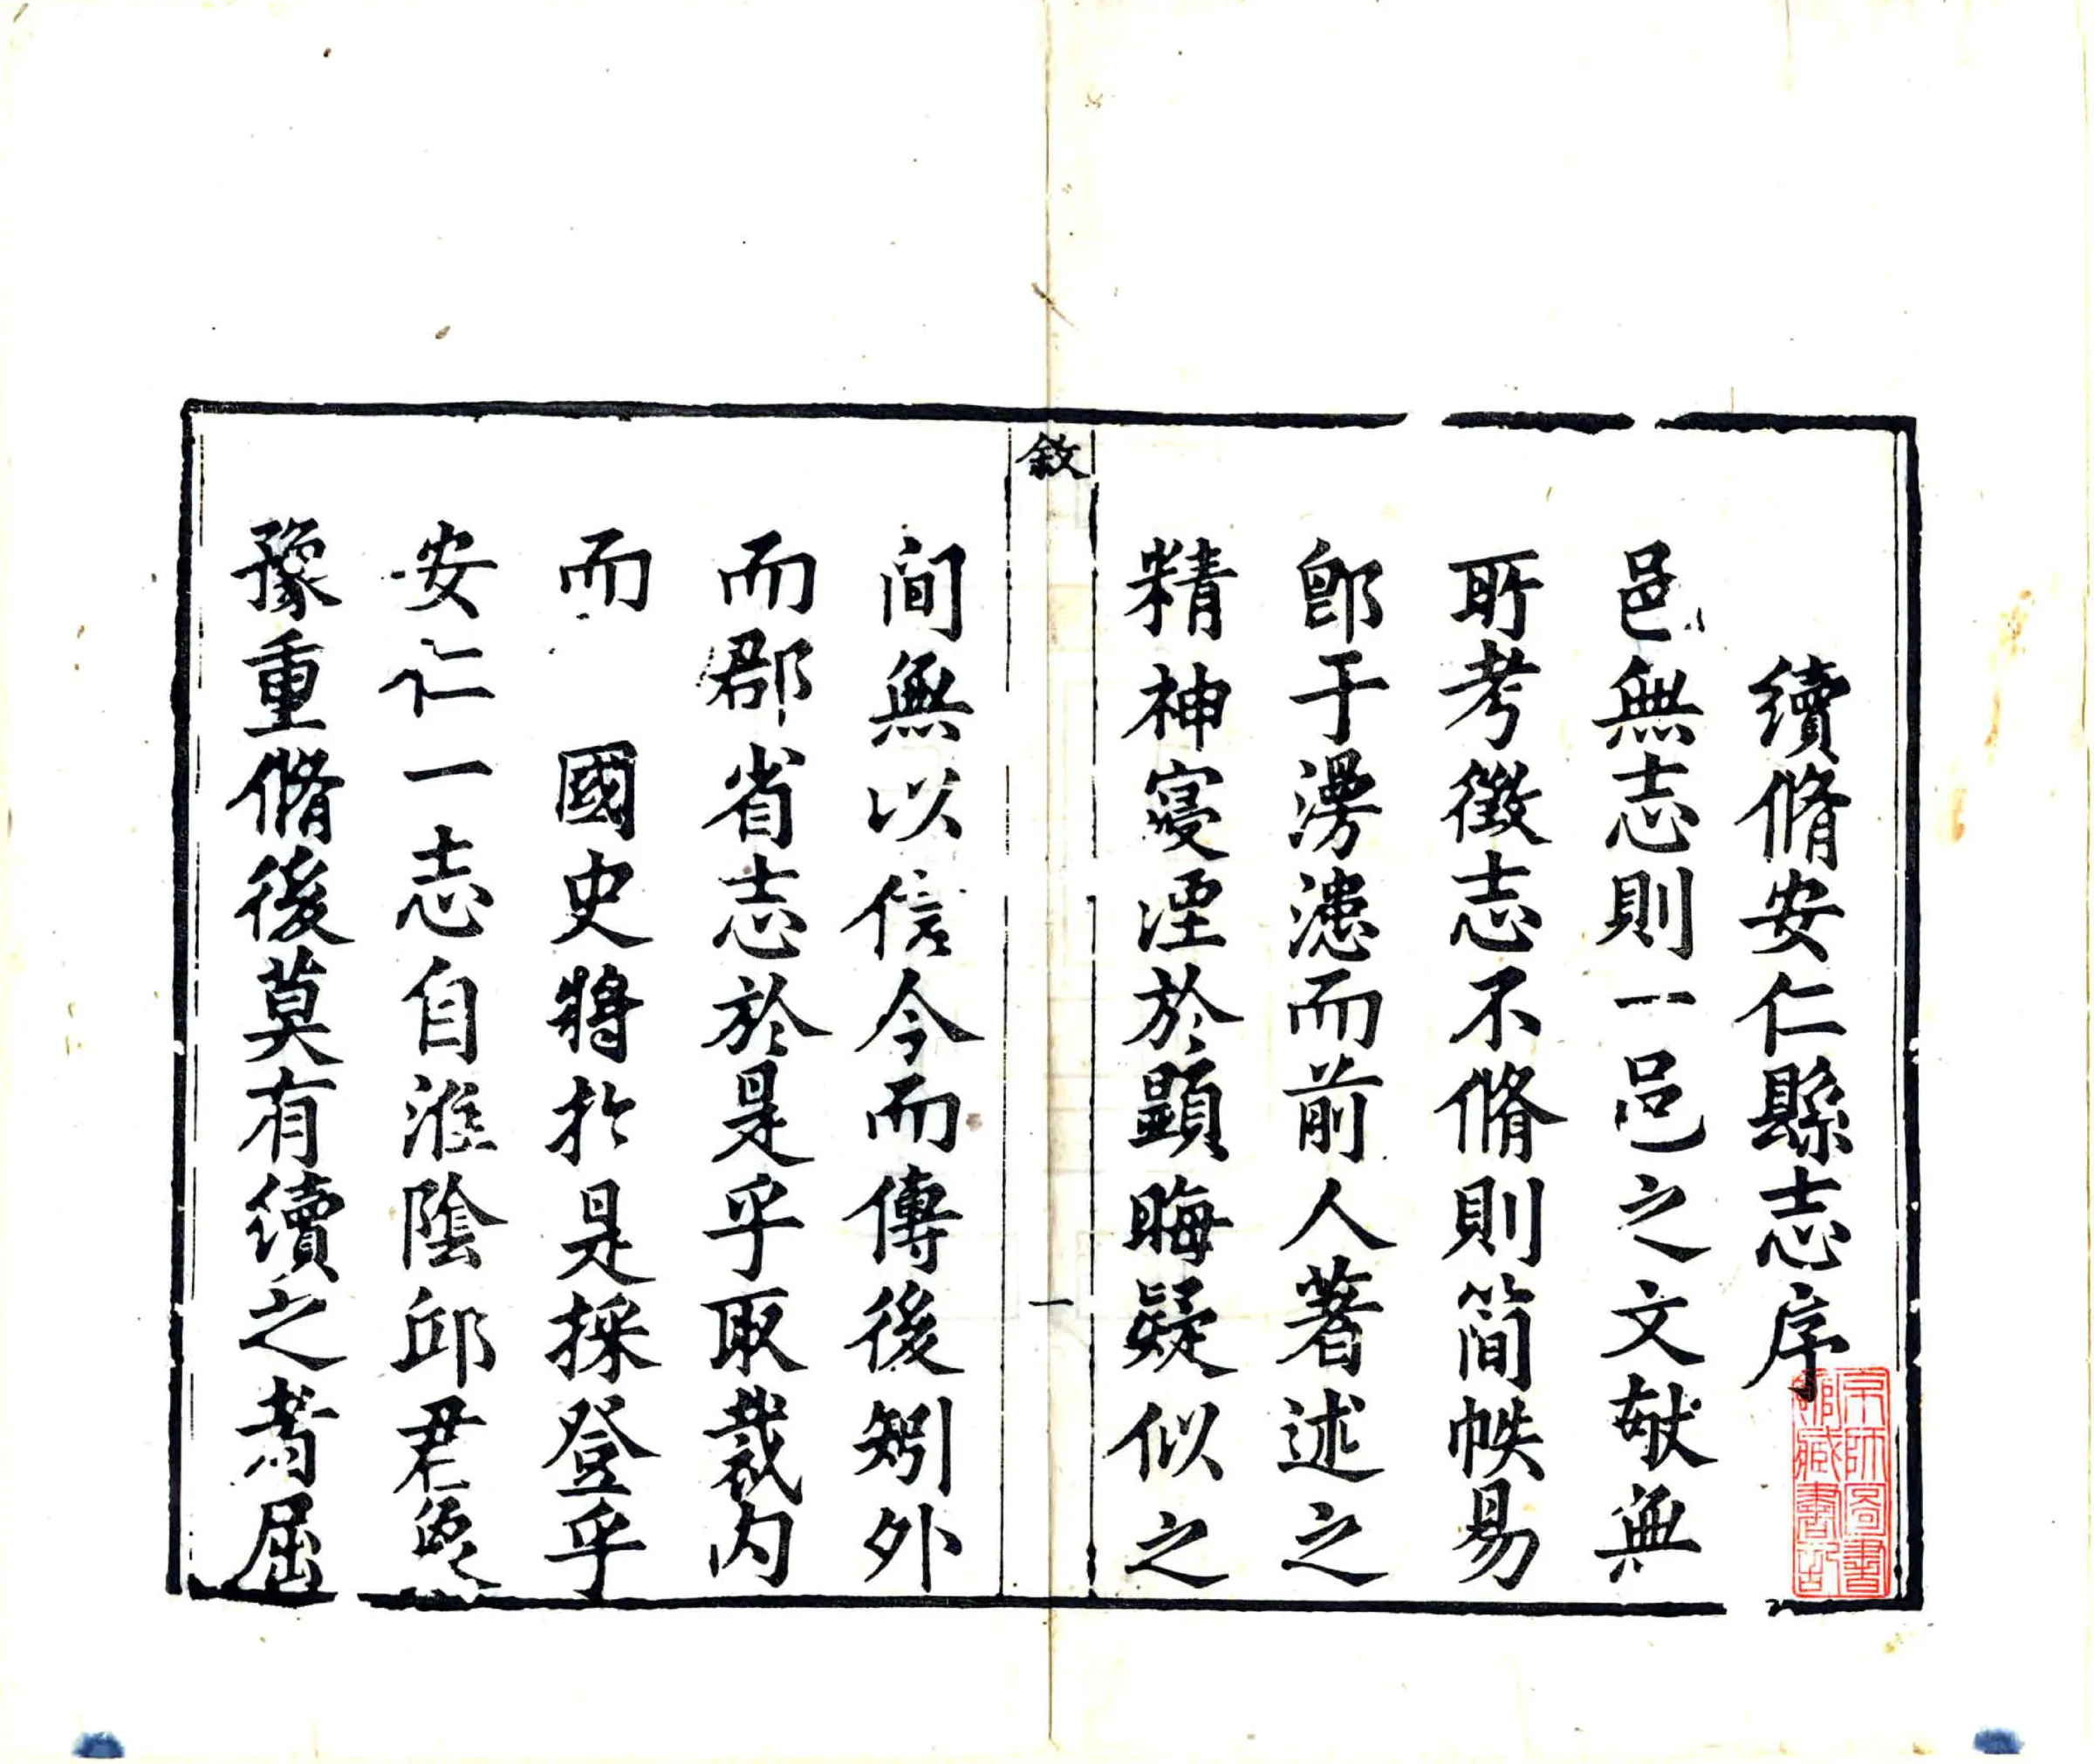 續脩安仁縣志序
邑無志則一邑之文献無
所考徵志不脩則簡帙易
卽于漫漶而前人著述之
精神寖湮於顯晦疑似之
間無以信今而傳後矧外
而郡省志於是乎取裁内
而 國史將於是採登乎
安仁一志自淮陰邱君
豫重脩後莫有續之者屈
敘
一
京師圖書
館藏書記